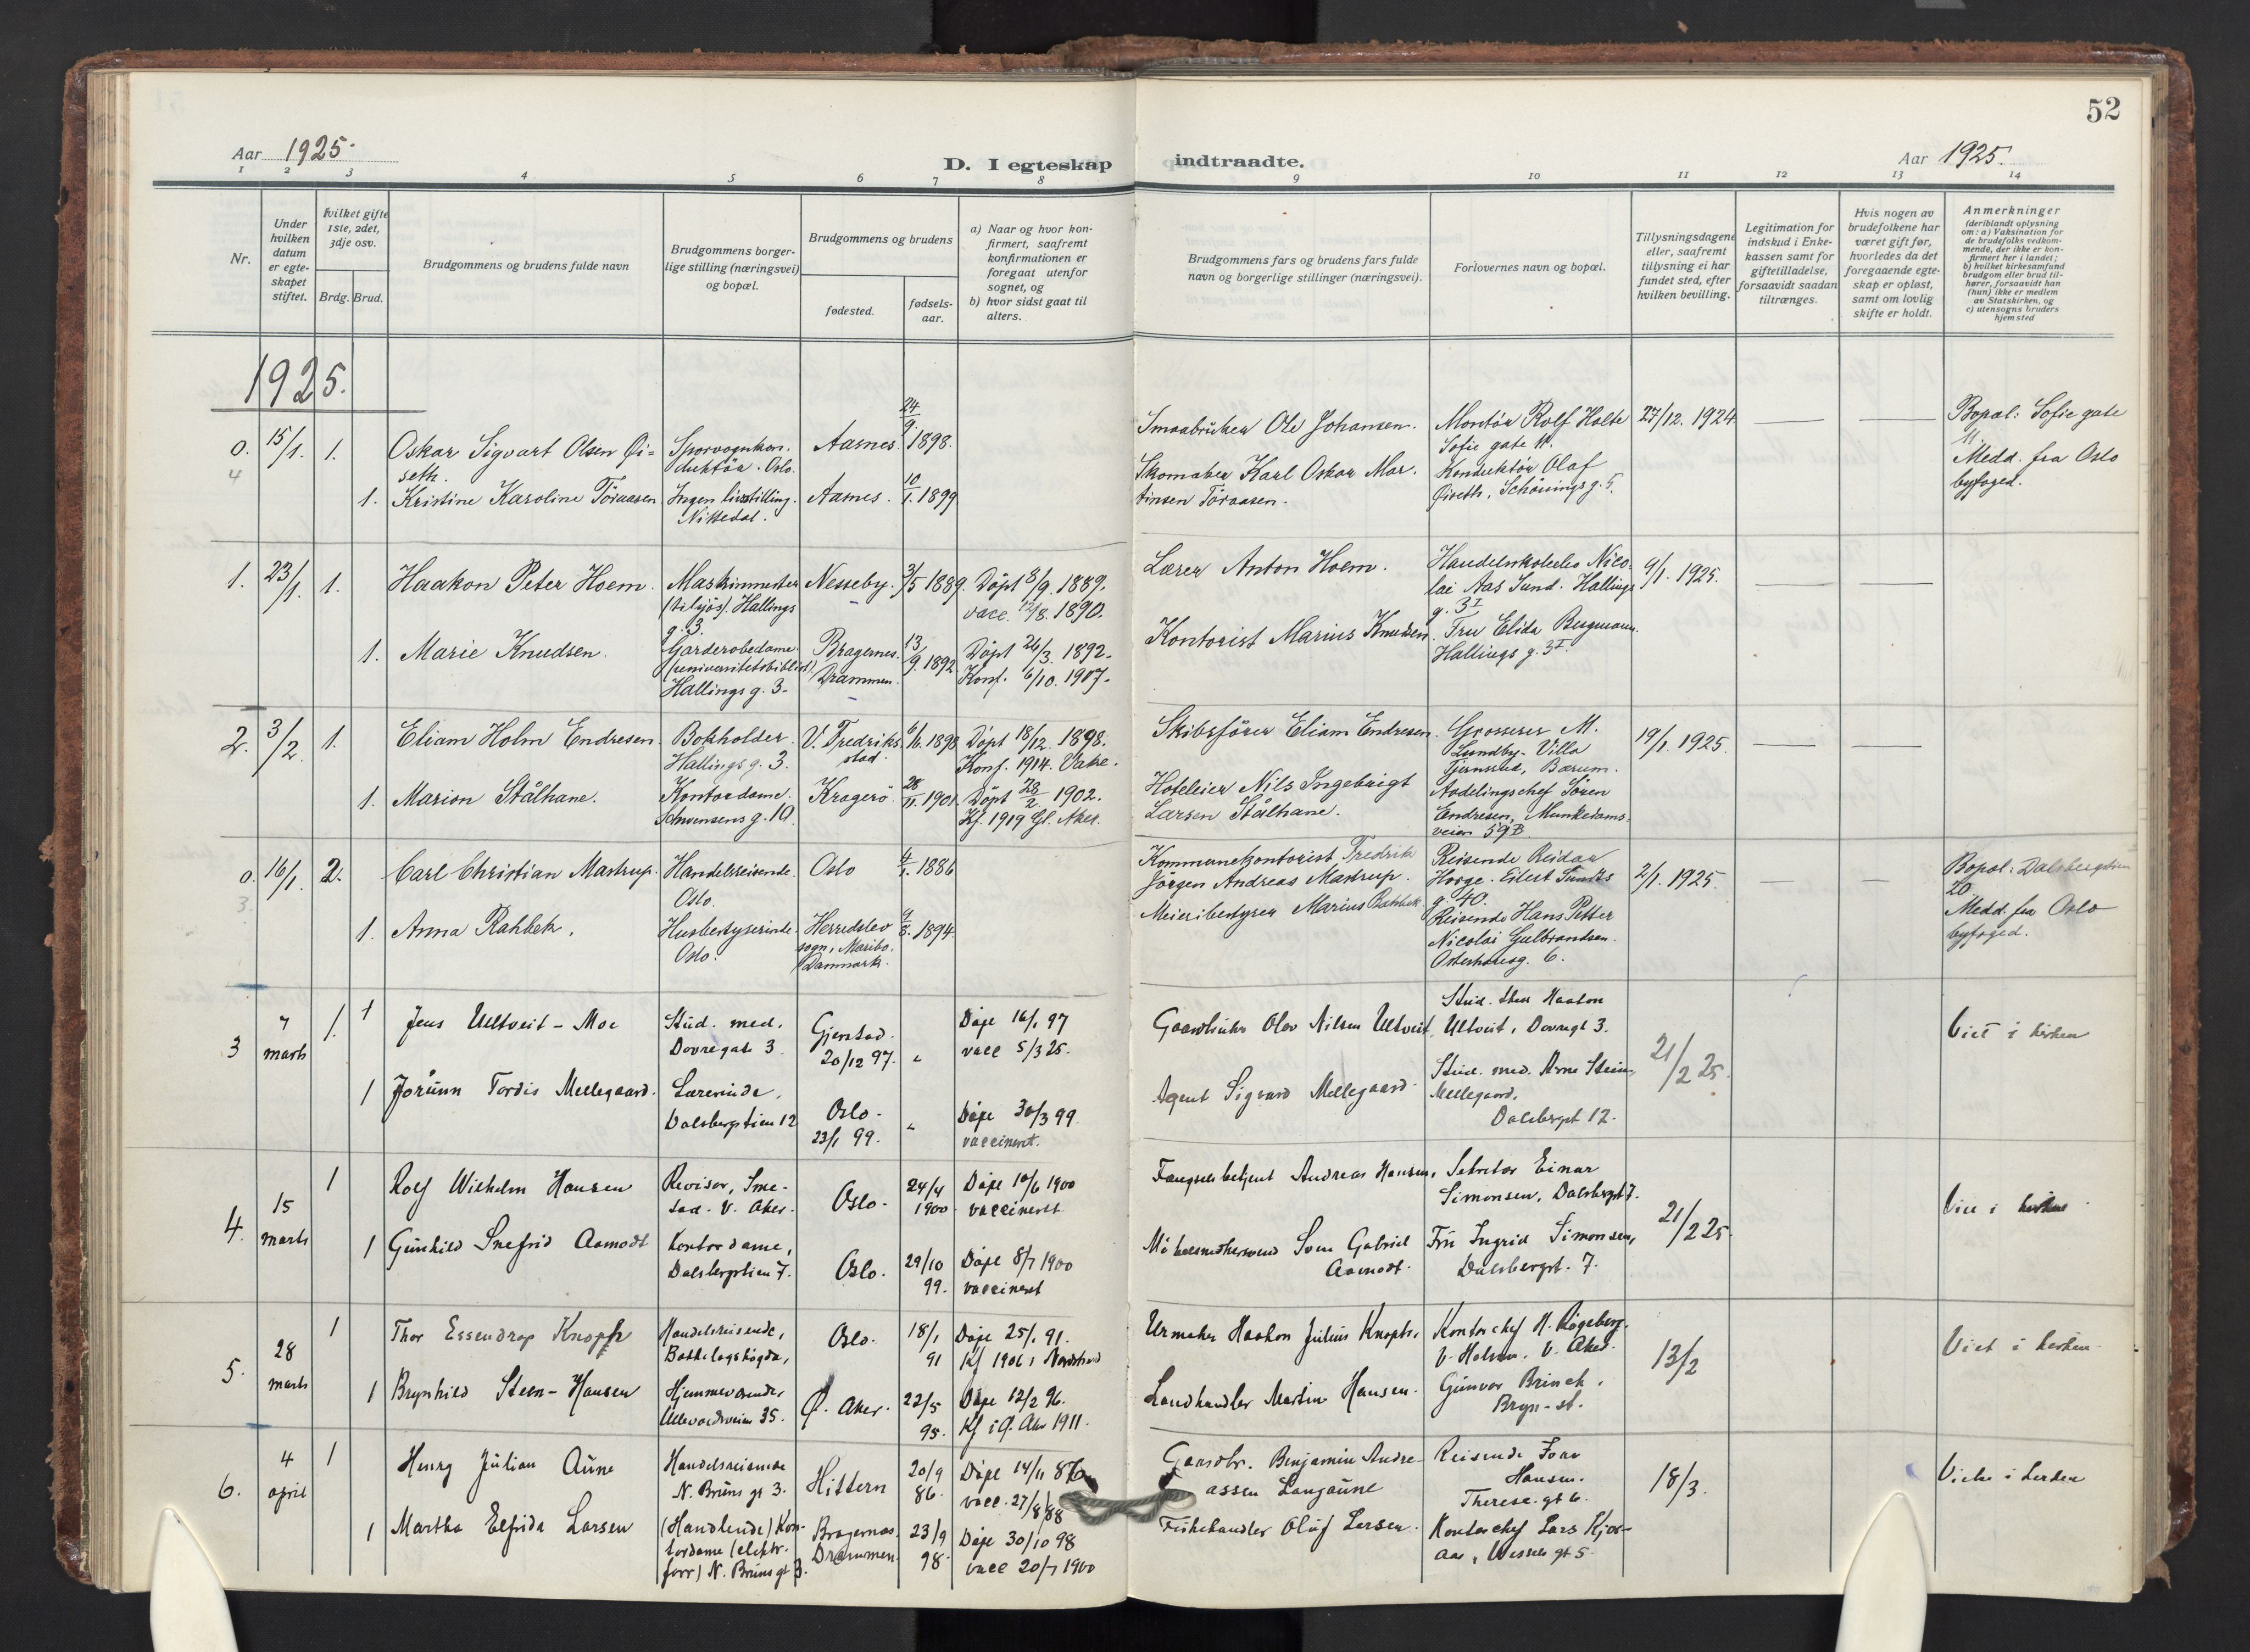 52
Aar 1925.
D. I egteskap indtraadte.
Aar 1925.
1 2 3 4 5 6 7 8 9 10 11 12 13 14
Nr.
Under
hvilken
datum
er egte-
skapet
stiftet.
hvilket gifte
1ste, 2det,
3dje osv.
Brdg. Brud.
Brudgommens og brudens fulde navn
Brudgommens borger-
lige stilling (næringsvei)
og bopæl.
Brudgommens og brudens
fødested.
fødsels-
aar.
a) Naar og hvor kon-
firmert, saafremt
konfirmationen er
foregaat utenfor
sognet, og
b) hvor sidst gaat til
alters.
Brudgommens fars og brudens fars fulde
navn og borgerlige stillinger (næringsvei).
Forlovernes navn og bopæl.
Tillysningsdagene
eller, saafremt
tillysning ei har
fundet sted, efter
hvilken bevilling.
Legitimation for
indskud i Enke-
kassen samt for
giftetilladelse,
forsaavidt saadan
tiltrænges.
Hvis nogen av
brudefolkene har
været gift før,
hvorledes da det
foregaaende egte-
skap er opløst,
samt om lovlig
skifte er holdt.
Anmerkninger
(deriblandt oplysning
om: a) Vaksination for
de brudefolks vedkom-
mende, der ikke er kon-
firmert her i landet;
b) hvilket kirkesamfund
brudgom eller brud til-
hører, forsaavidt han
(hun) ikke er medlem
av Statskirken, og
c) utensogns bruders
hjemsted
1925.
0. 15/1. 1.
4
Oskar Sigvart Olsen Øi-
seth.
Sporvognkon-
duktör. Oslo.
Aarnes.
24/9 1898.
Smaabruker Ole Johansen.
Montör Rolf Holte
Sofie gate 11.
27/12. 1924
Bopæl: Sofie gate
11
Medd. fra Oslo
byfoged.
1. Kristine Karoline Töraasen
Ingen livsstilling.
Nittedal.
Aarnes.
10/1. 1899
Skomaker Karl Oskar Mar-
tinsen Töraasen.
Konduktör Olaf
Øiseth, Schöningsg. 5.
1. 23/1. 1.
Haakon Peter Hoem.
Maskinmester
(tilsjös) Hallings
g. 3.
Nesseby.
3/5 1889.
Döpt 8/9. 1889.
vacc. 12/8. 1890.
Lærer Anton Hoem.
Handelsskolelev Nico-
lai Aas Sund. Hallings
g. 3 I
9/1. 1925.
1. Marie Knudsen.
Garderobedame
(universitetsbibliot.)
Hallings g. 3.
Bragernes.
Drammen.
13/9. 1892
Döpt 26/3. 1892.
Konf. 6/10. 1907.
Kontorist Marius Knudsen.
Fru Elida Bergmann.
Hallings g. 3 I.
2. 3/2. 1.
Eliam Holm Endresen.
Bokholder.
Hallings g. 3.
V. Fredrik-
stad.
6/6. 1898
Döpt 18/12. 1898.
Konf. 1914. Vakc.
Skibsförer Eliam Endresen.
Grosserer M.
Lundby. Villa
Tjernsrud, Bærum.
19/1. 1925.
1. Marion Stålhane.
Kontordame.
Schwensens g. 10.
Kragerö.
28/11. 1901
Döpt 23/2. 1902.
Kf. 1919 Gl. Aker.
Hoteleier Nils Ingebrigt
Larsen Stålhane.
Avdelingschef Sören
Endresen, Munkedams-
veien 59B
0. 16/1. 2.
3
Carl Christian Mastrup.
Handelsreisende.
Oslo.
Oslo
4/1. 1886
Kommunekontorist Fredrik
Jörgen Andreas Mastrup.
Reisende Reidar
Horge. Eilert Sundts
g. 40.
2/1. 1925.
Bopæl: Dalsbergstien
20
Medd. fra Oslo
byfoged.
1. Anna Rahbek.
Husbestyrerinde
Oslo.
Herredslev
sogn, Maribo.
Danmark.
9/8. 1894.
Meieribestyrer Marius Rahbek
Reisende Hans Petter
Nicolai Gulbrandsen.
Osterhausg. 6.
3 7 marts 1. 1
Jens Ueltveit-Moe
Stud. med.
Dovregate 3.
Gjerstad.
20/12 97.
Döpt 16/1 97
vacc 5/3 25.
Gaardbruker Olav Nilsen Ueltveit,
Stud. theol Haakon
Ultveit, Dovregt 3.
21/2 25.
Viet i kirken
1 Jorunn Tordis Mellegaard.
Lærerinde,
Dalsbergstien 12
Oslo.
23/1 99.
Döpt 30/3 99.
vaccineret.
Agent Sigvard Mellegaard.
Stud. med. Arne Stein
Mellegaard,
Dalsbergst 12.
4. 15 marts 1
Rolf Wilhelm Hansen
Revisor, Sme-
stad. V. Aker.
Oslo.
24/4
1900
Döpt 10/6 1900
vaccineret
Fængselsbetjent Andreas Hansen,
Sekretær Einar
Simonsen, Dalsbergst 7.
21/2 25.
Viet i kirken
1 Gunhild Snefrid Aamodt
Kontordame,
Dalsbergstien 7.
Oslo.
29/10
99.
Döpt 8/7 1900
vaccineret
Möbelsnekkersvend Sven Gabriel
Aamodt.
Fru Ingrid Simonsen,
Dalsbergst. 7.
5. 28 marts 1
Thor Essendrop Knoph
Handelsreisende,
Bækkelagshögda,
Oslo.
18/1
91
Döpt 25/1 91.
Kf 1906 i Nordstrand
Urmaker Haakon Julius Knoph.
Kontorchef H. Rögeberg.
V. Holmen. V. Aker.
13/2
Viet i kirken
1 Brynhild Steen-Hansen
Hjemmeværende,
Ullevoldsveien 35.
Ø. Aker.
22/5
95.
Döpt 12/2 96.
Kf i Ø. Aker 1911.
Landhandler Martin Hansen.
Gunvor Brinch,
Bryn-st.
6. 4 april 1
Henry Julian Aune
Handelsreisende
N. Bruns gt 3.
Hittern
20/9
86.
Döpt 14/11 86
vacc. 27/8 88
Gaardbr. Benjamin Andre-
assen Langaune
Reisende Ivar
Hansen.
Therese. gt 6.
18/3.
Viet i kirken
1 Martha Elfrida Larsen
(Handlende) Kon-
tordame (elektr.
forr) N. Bruns gt 3.
Bragernæs
Drammen.
23/9
98.
Döpt 30/10 98
vacc 20/7 1900
Fiskehandler Oluf Larsen.
Kontorchef Lars Kjos-
aas, Wessels gt 5.